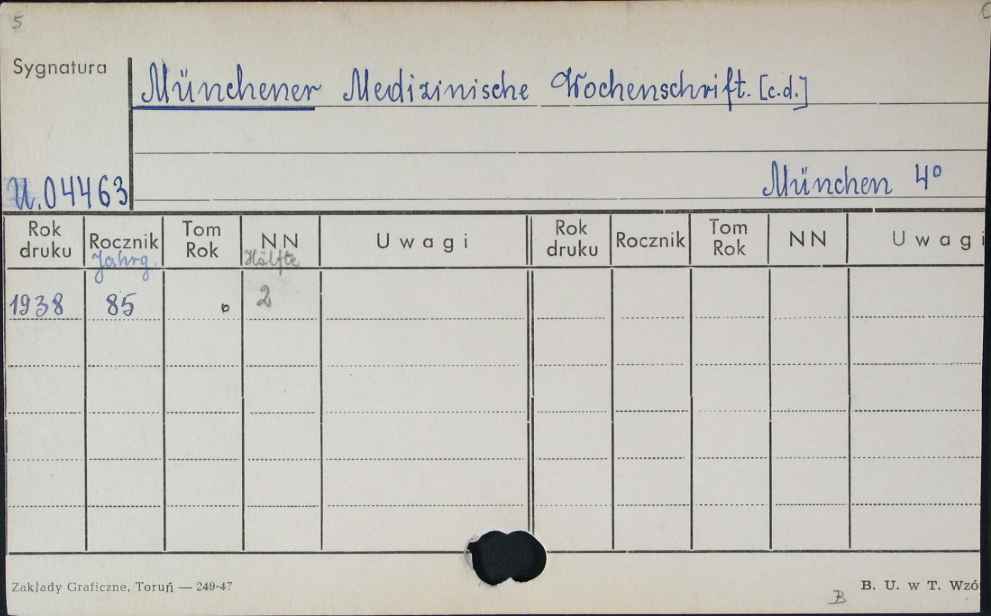 5
Sygnatura
Münchener Medizinische Wochenschrift. [c.d.]
München 4°
U.04463
Rok druku Rocznik Tom Rok NN Uwagi Rok druku Rocznik Tom Rok NN Uwagi
Jahrg. Hälfte
1938 85 2
Zakłady Graficzne, Toruń — 249-47
B. U. w T. Wzó
B